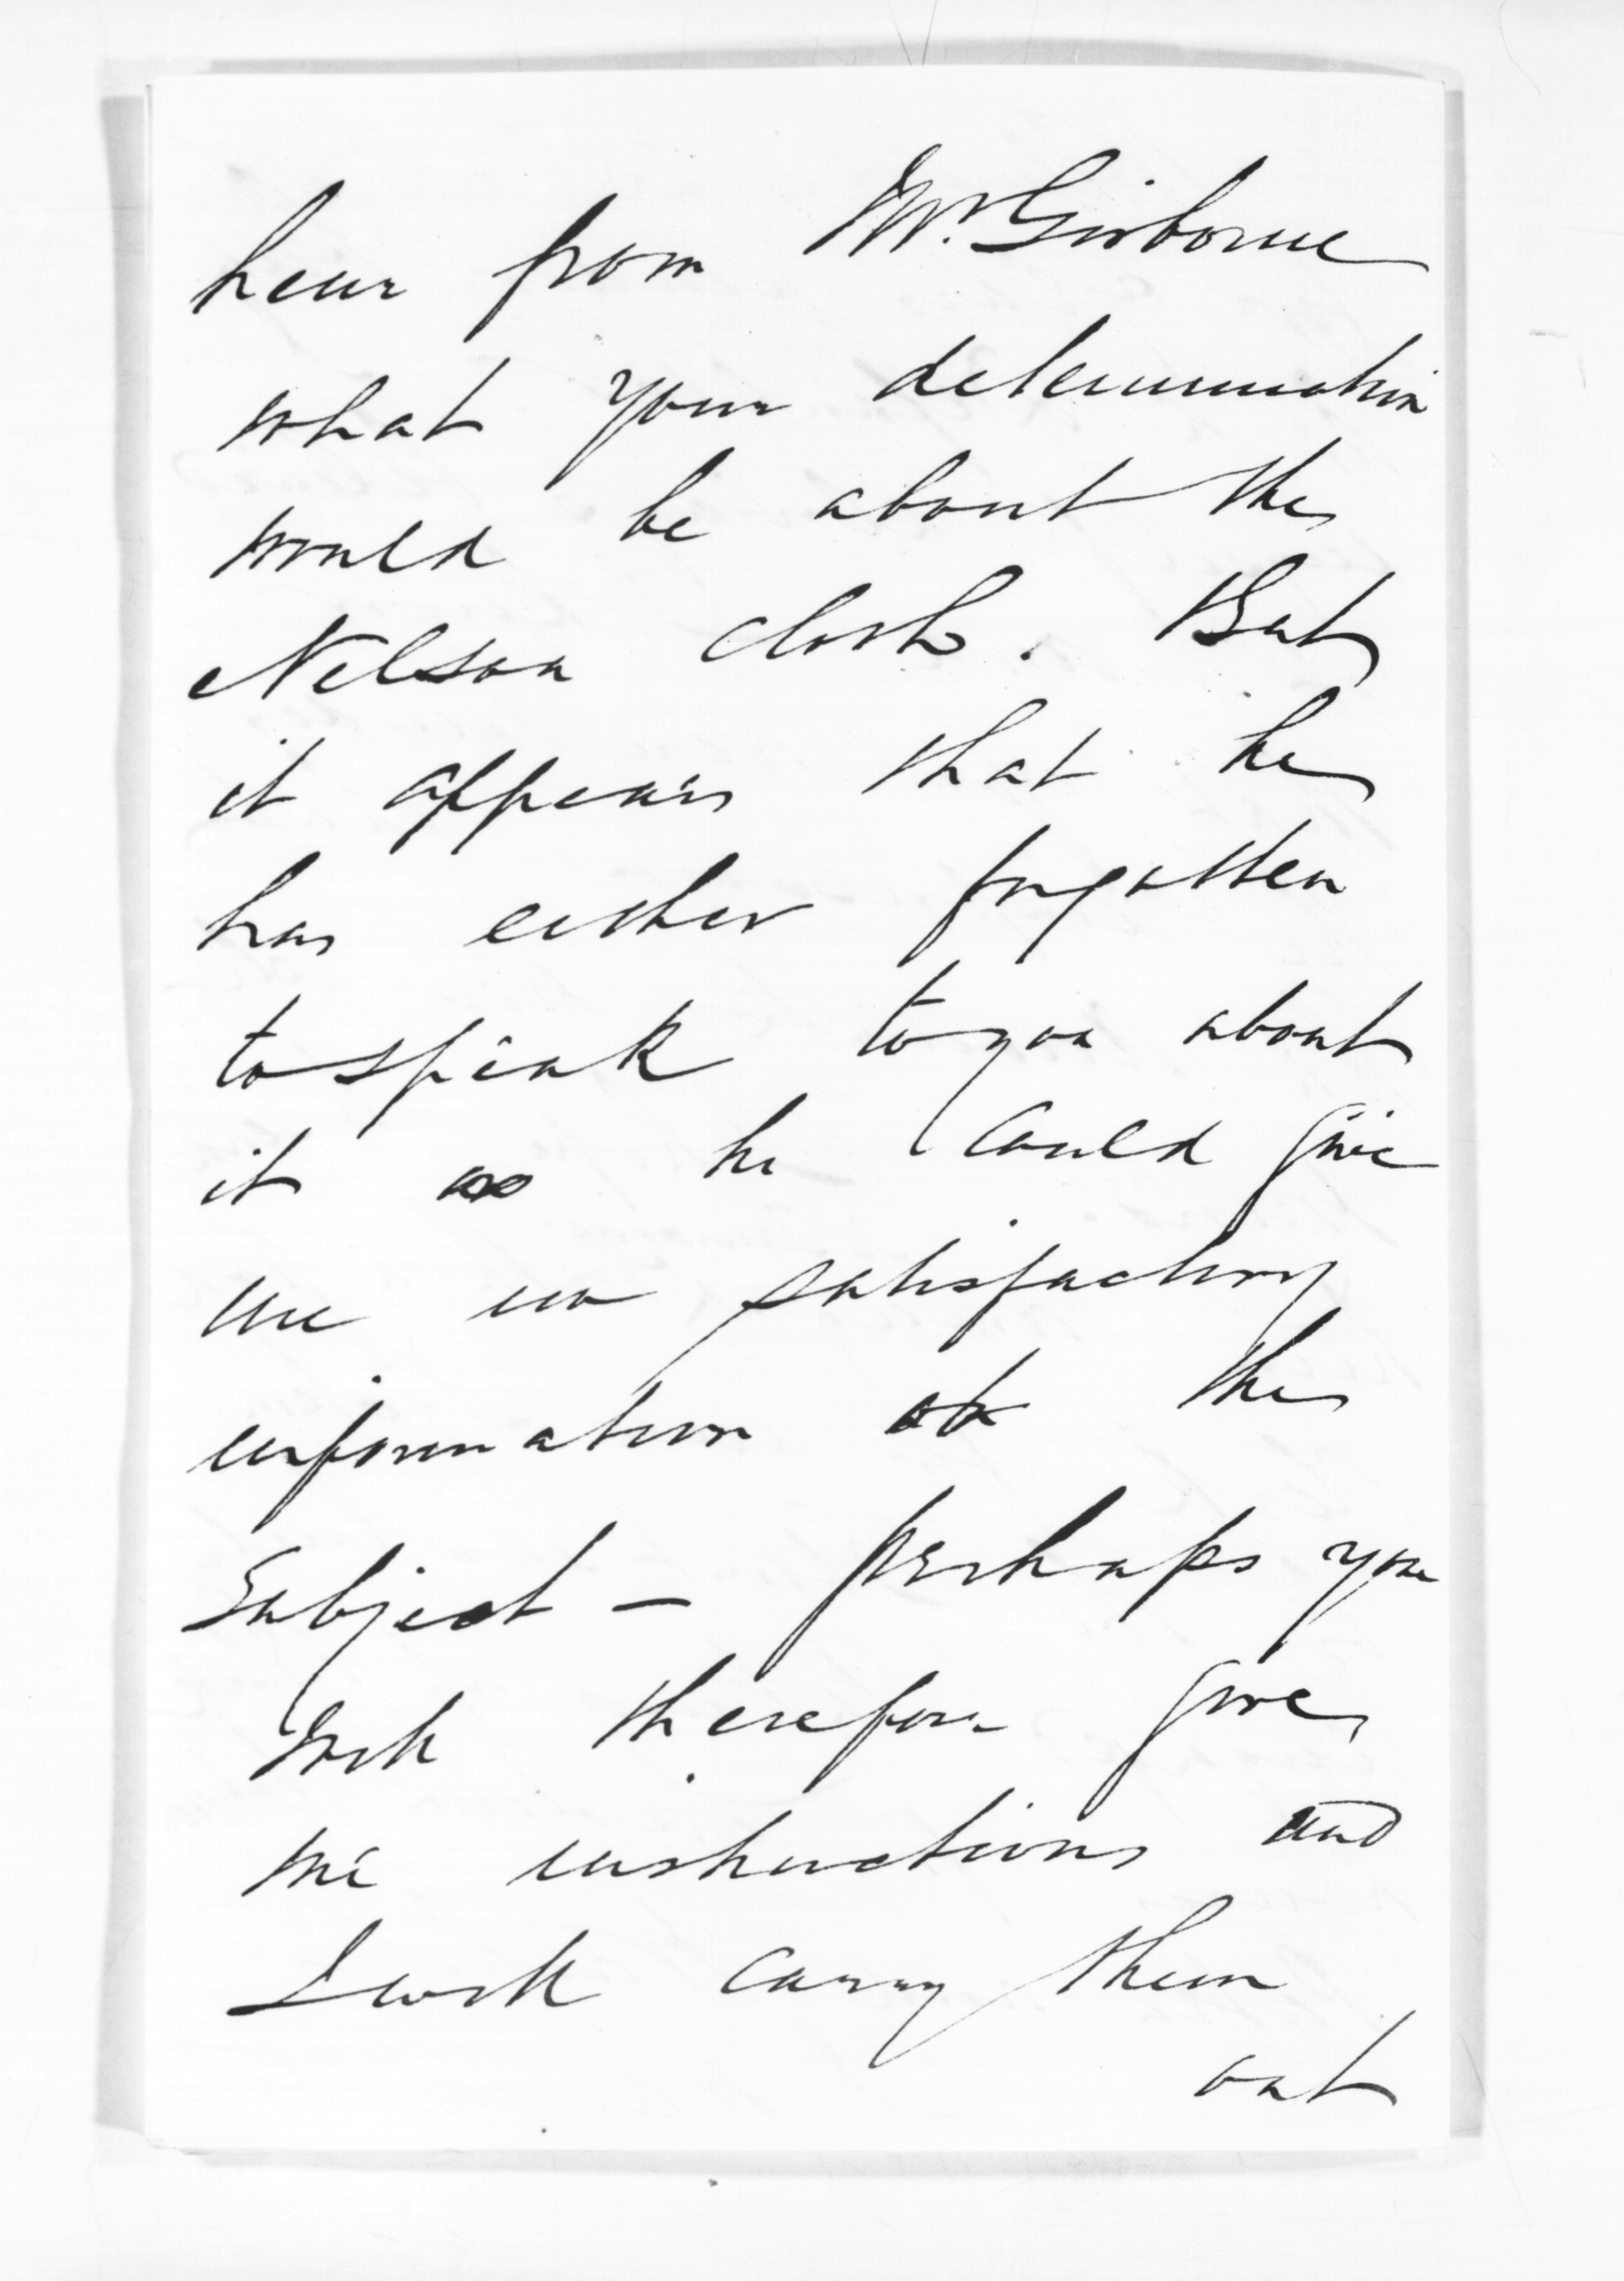 hear from Mr. Gisborne
what your determination
would be about the
Nelson cloth. But
it appears that he
has either forgotten
to speak to you about
it as he could give
me no satisfactory
information on the
Subject — perhaps you
will therefore give
me instructions and
I will carry them
out